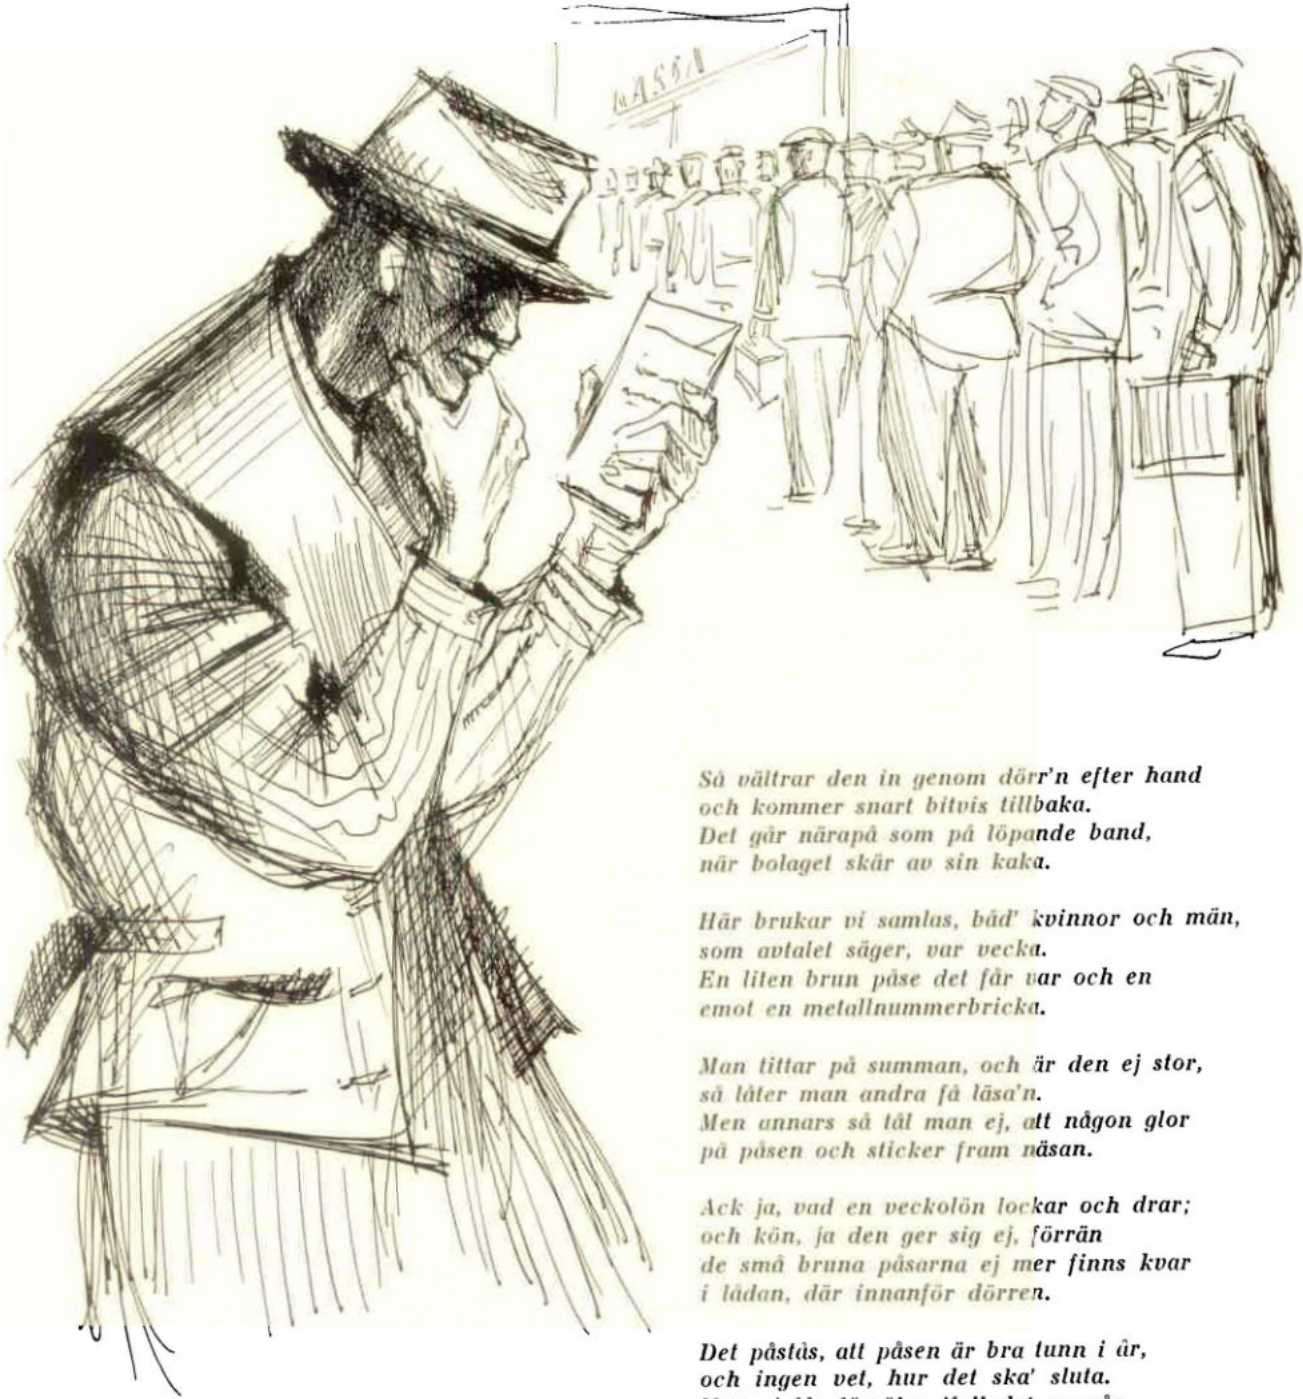 KASSA
Så vältrar den in genom dörr'n efter hand
och kommer snart bitvis tillbaka.
Det går närapå som på löpande band,
när bolaget skär av sin kaka.
Här brukar vi samlas, båd' kvinnor och män,
som avtalet säger, var vecka.
En liten brun påse det får var och en
emot en metallnummerbricka.
Man tittar på summan, och är den ej stor,
så låter man andra få läsa'n.
Men annars så tål man ej, att någon glor
på påsen och sticker fram näsan.
Ack ja, vad en veckolön lockar och drar;
och kön, ja den ger sig ej, förrän
de små bruna påsarna ej mer finns kvar
i lådan, där innanför dörren.
Det påstås, att påsen är bra tunn i år,
och ingen vet, hur det ska' sluta.